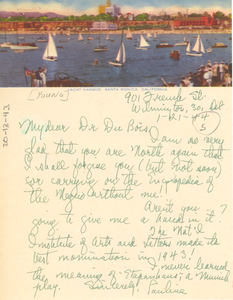 YACHT HARBOR, SANTA BARBARA, CALIFORNIA
[Young]
901 French St.
Wilmington, 30, Del
1-21-44
5
20-12-43
My dear Dr Du Bois,
I am so very
glad that you are North again that
I shall forgive you (but not soon
for carrying on the Encyclopedia of
the Negro without me.
Aren't you
going to give me a hand in it?
The Nat'l
Institute of Arts and Letters made its
best nomination in 1943!
I never learned
the meaning of "Steganhaus", a Munich
play.
Sincerely! Pauline